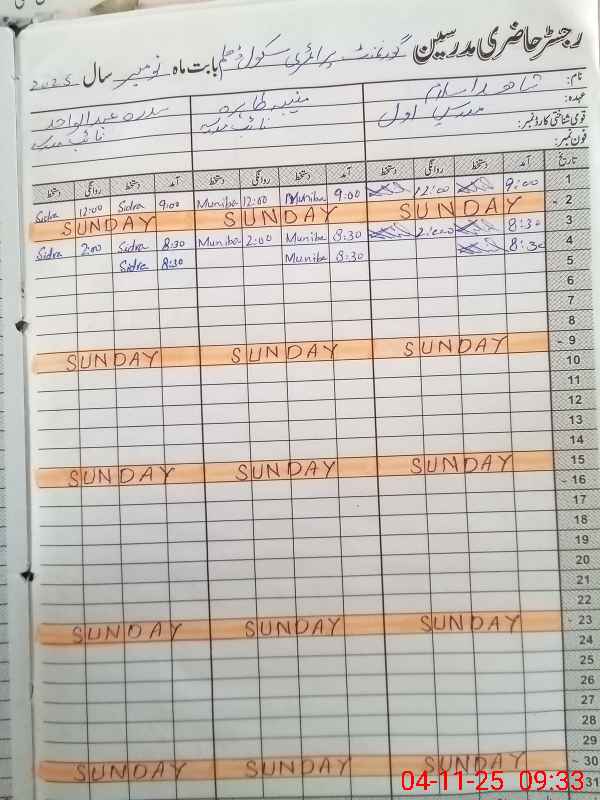 رجسٹر حاضری مدرسین گورنمنٹ پرائمری سکول بابت ماہ نومبر سال 2025
نام: شاہد اسلام منیبہ طاہرہ سدرہ عبدالواحد
عہدہ: مدرس اول نائب مدرسہ نائب مدرسہ
قومی شناختی کارڈ نمبر:
فون نمبر:
تاریخ آمد دستخط روانگی دستخط آمد دستخط روانگی دستخط آمد دستخط روانگی دستخط
1 9:00 12:00 9:00 Muniba 12:00 Muniba 9:00 Sidra 12:00 Sidra
2 SUNDAY SUNDAY SUNDAY
3 8:30 2:00 8:30 Muniba 2:00 Muniba 8:30 Sidra 2:00 Sidra
4 8:30 8:30 Muniba 8:30 Sidra
5
6
7
8
9 SUNDAY SUNDAY SUNDAY
10
11
12
13
14
15
16 SUNDAY SUNDAY SUNDAY
17
18
19
20
21
22
23 SUNDAY SUNDAY SUNDAY
24
25
26
27
28
29
30 SUNDAY SUNDAY SUNDAY
31
04-11-25 09:33